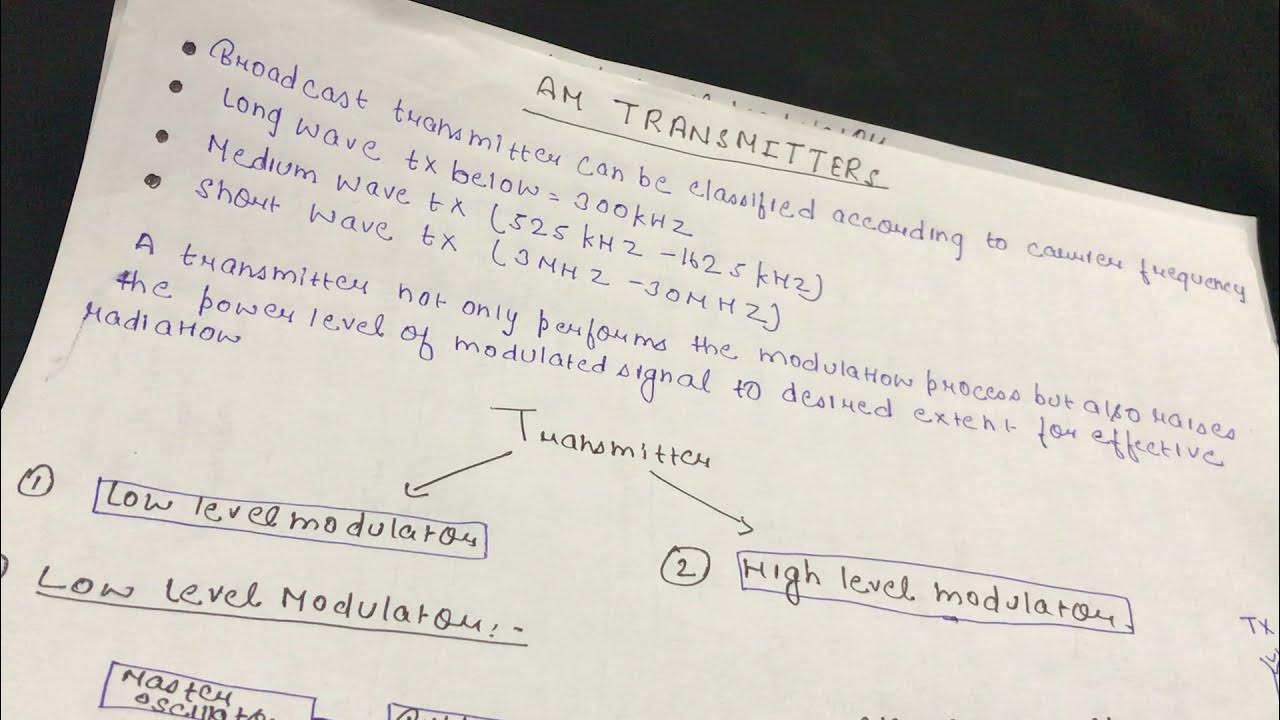 AM TRANSMITTERS
Broadcast transmitter can be classified according to carrier frequency
Long wave tx below = 300kHZ
Medium wave tx (525 kHZ - 1625 kHZ)
Short wave tx (3MHZ - 30MHZ)
A transmitter not only performs the modulation process but also raises
the power level of modulated signal to desired extent for effective
radiation
Transmitter
1 Low level modulator
2 High level modulator
Low Level Modulator:-
TX
Master
oscillator